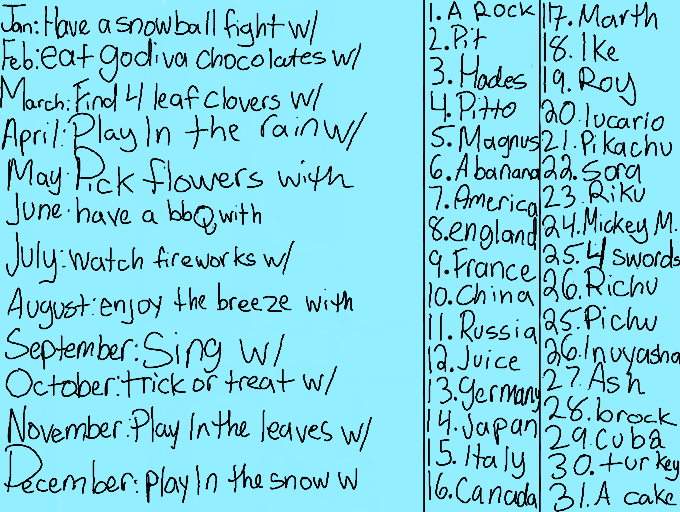 Jan: Have a snowball fight w/
Feb: eat godiva chocolates w/
March: Find 4 leaf clovers w/
April: Play In the rain w/
May: Pick flowers with
June: have a bbQ with
July: watch fireworks w/
August: enjoy the breeze with
September: Sing w/
October: trick or treat w/
November: Play In the leaves w/
December: play In the snow w
1. A Rock
2. Pit
3. Hades
4. Pitto
5. Magnus
6. A banana
7. America
8. england
9. France
10. China
11. Russia
12. Juice
13. germany
14. Japan
15. Italy
16. Canada
17. Marth
18. Ike
19. Roy
20. lucario
21. Pikachu
22. Sora
23. Riku
24. Mickey M.
25. 4 swords
26. Richu
25. Pichu
26. Inuyasha
27. Ash
28. brock
29. Cuba
30. turkey
31. A cake